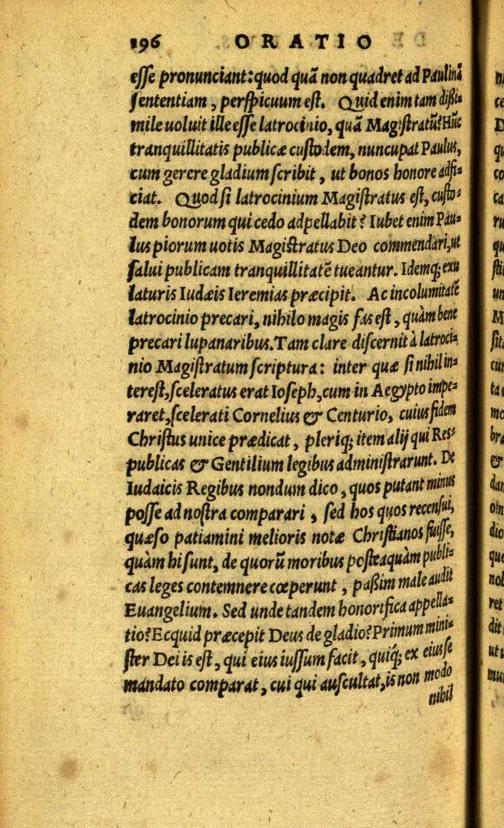 196 ORATIO
esse pronunciant: quod quã non quadret ad Paulinã
sententiam, perspicuum est. Quid enim tam dissi-
mile uoluit ille esse latrocinio, quã Magistratũ? Hũc
tranquillitatis publicæ custodem, nuncupat Paulus,
cum gerere gladium scribit, ut bonos honore adfi-
ciat. Quod si latrocinium Magistratus est, custo-
dem bonorum qui cedo adpellabit? Iubet enim Pau-
lus piorum uotis Magistratus Deo commendari, ut
salui publicam tranquillitatẽ tueantur. Idemq; exu
laturis Iudæis Ieremias præcipit. Ac incolumitatẽ
latrocinio precari, nihilo magis fas est, quàm bene
precari lupanaribus. Tam clare discernit à latroci-
nio Magistratum scriptura: inter quæ si nihil in-
terest, sceleratus erat Ioseph, cum in Aegypto impe-
raret, scelerati Cornelius & Centurio, cuius fidem
Christus unice prædicat, pleriq; item alij qui Res-
publicas & Gentilium legibus administrarunt. De
Iudaicis Regibus nondum dico, quos putant minus
posse ad nostra comparari, sed hos quos recensui,
quæso patiamini melioris notæ Christianos fuisse,
quàm hi sunt, de quorũ moribus posteaquàm publi-
cas leges contemnere cœperunt, passim male audit
Euangelium. Sed unde tandem honorifica appella-
tio? Ecquid præcepit Deus de gladio? Primum mini-
ster Dei is est, qui eius iussum facit, quiq; ex eius se
mandato comparat, cui qui auscultat, is non modo
nihil